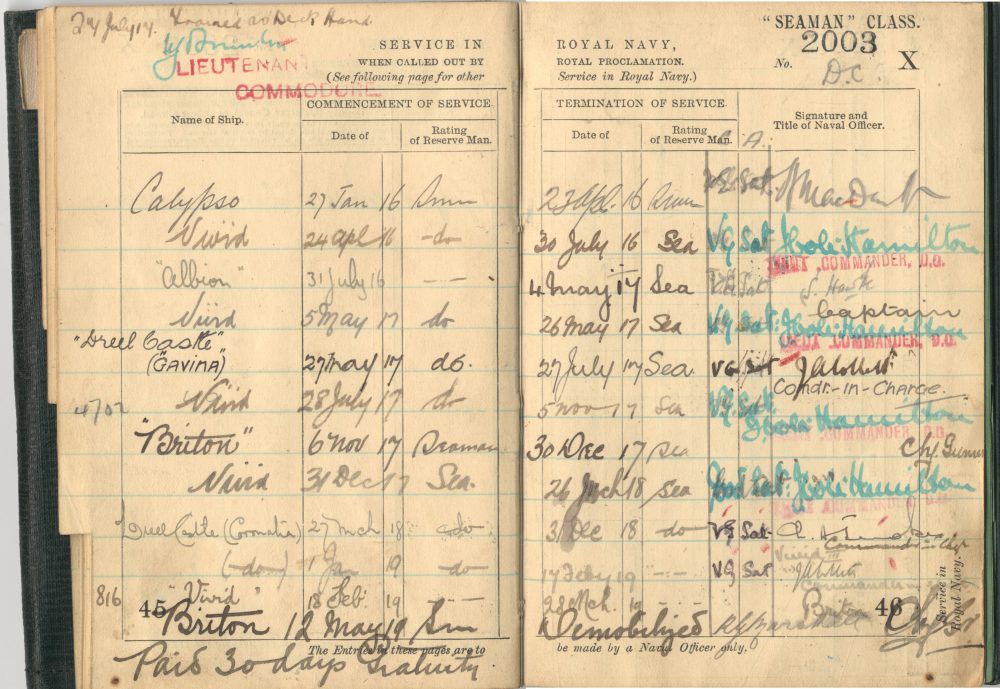 24 July 17. Trained as Deck Hand.
LIEUTENANT
COMMODORE
SERVICE IN
WHEN CALLED OUT BY
(See following page for other
Name of Ship.
COMMENCEMENT OF SERVICE
Date of
Rating of Reserve Man.
Calypso 27 Jan 16 Smn
Vivid 24 apl 16 -do
"Albion" 31 July 16 —
Vivid 5 May 17 do
"Dreel Castle"
(GAVINA) 27 May 17 do.
4702 Vivid 28 July 17 do
"Briton" 6 Nov 17 Seaman
Vivid 31 Dec 17 Sea.
Dreel Castle (Coronatia) 27 Mch 18 -do-
(-do-) 1 Jan 19 -do-
816 "Vivid" 18 Feb. 19 —
45 Briton 12 May 19 Smn
The Entries in these pages are to
Paid 30 days Gratuity
"SEAMAN" CLASS.
ROYAL NAVY,
ROYAL PROCLAMATION.
Service in Royal Navy.)
No. 2003 X
D.C.
TERMINATION OF SERVICE.
Date of
Rating of Reserve Man.
C. A.
Signature and Title of Naval Officer.
23 Apl. 16 VG. Sat.
30 July 16 Sea VG Sat Hamilton
LIEUT. COMMANDER, D.O.
4 May 17 Sea VG. Sat
Captain
26 May 17 Sea VG. Sat. Hamilton
COMMANDER, D.O.
27 July 17 Sea. VG Sat
Comdr.-in-Charge.
5 Nov 17 Sea VG. Sat Hamilton
COMMANDER, D.O.
30 Dec 17 Sea Ch. Gunner
26 Mch 18 Sea Good Sat. Hamilton
COMMANDER, D.O.
31 Dec 18 -do- VG Sat
17 Feby 19 --- VG Sat
Vivid III
28 Mch. 19 — Briton
Demobilized 46
Service in Royal Navy.
be made by a Naval Officer only.